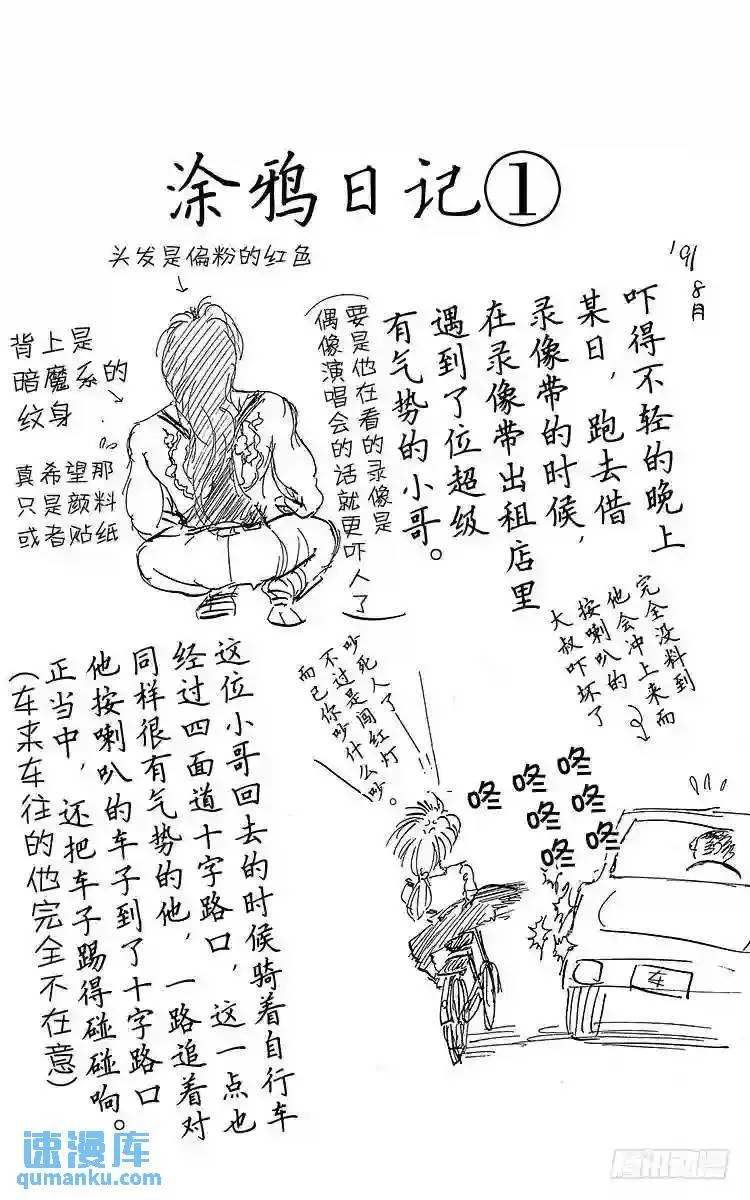 涂鸦日记①
'91
8月
吓得不轻的晚上
某日，跑去借
录像带的时候，
在录像带出租店里
遇到了位超级
有气势的小哥。
（要是他在看的录像是
偶像演唱会的话就更吓人了）
头发是偏粉的红色
背上是
暗魔系的
纹身
真希望那
只是颜料
或者贴纸
完全没料到
他会冲上来而
按喇叭的
大叔吓坏了
吵死人了
不过是闯红灯
而已你吵什么吵。
咚咚咚
咚咚
咚咚
车
这位小哥回去的时候骑着自行车
经过四面道十字路口，这一点也
同样很有气势的他，一路追着对
他按喇叭的车子到了十字路口
正当中，还把车子踢得碰碰响。
（车来车往的他完全不在意）
速漫库
qumanku.com